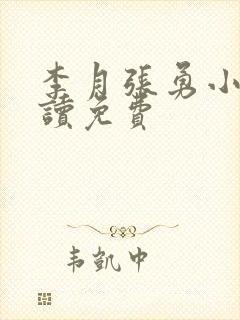 李月張勇小
讀免費
韦凱中